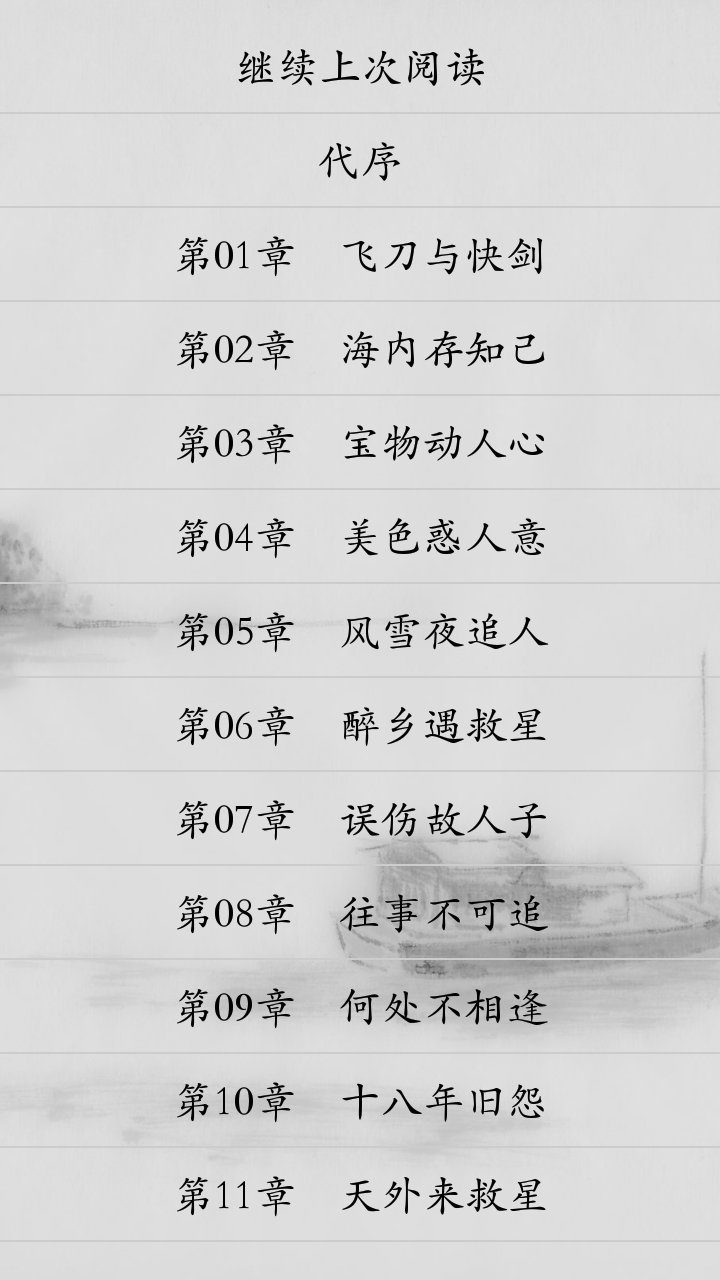 继续上次阅读
代序
第01章　飞刀与快剑
第02章　海内存知己
第03章　宝物动人心
第04章　美色惑人意
第05章　风雪夜追人
第06章　醉乡遇救星
第07章　误伤故人子
第08章　往事不可追
第09章　何处不相逢
第10章　十八年旧怨
第11章　天外来救星